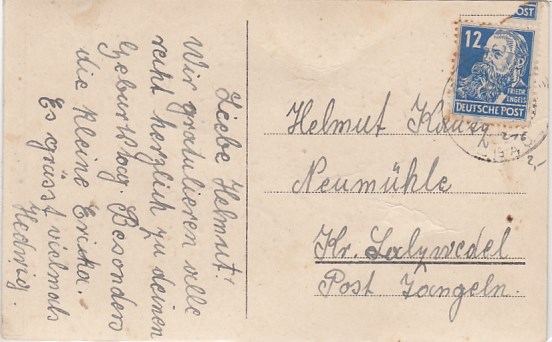 Liebe Helmut!
Wir gratulieren alle
recht herzlich zu deinen
Geburtstag. Besonders
die kleine Erika.
Es grüsst vielmals
Hedwig.
OST
12
FRIEDR.
ENGELS
DEUTSCHE POST
Helmut
Neumühle
Kr. Salzwedel
Post Tangeln.